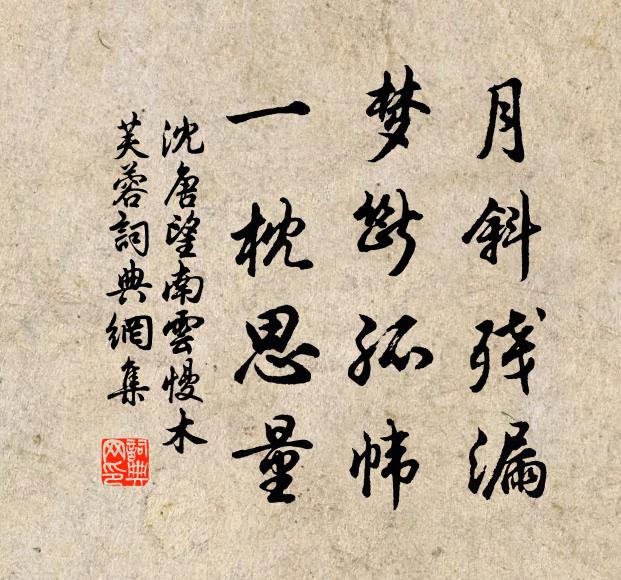 月斜残漏
梦断孤帏
一枕思量
沈唐望南雲慢木
芙蓉詞典網集
詞典
网印